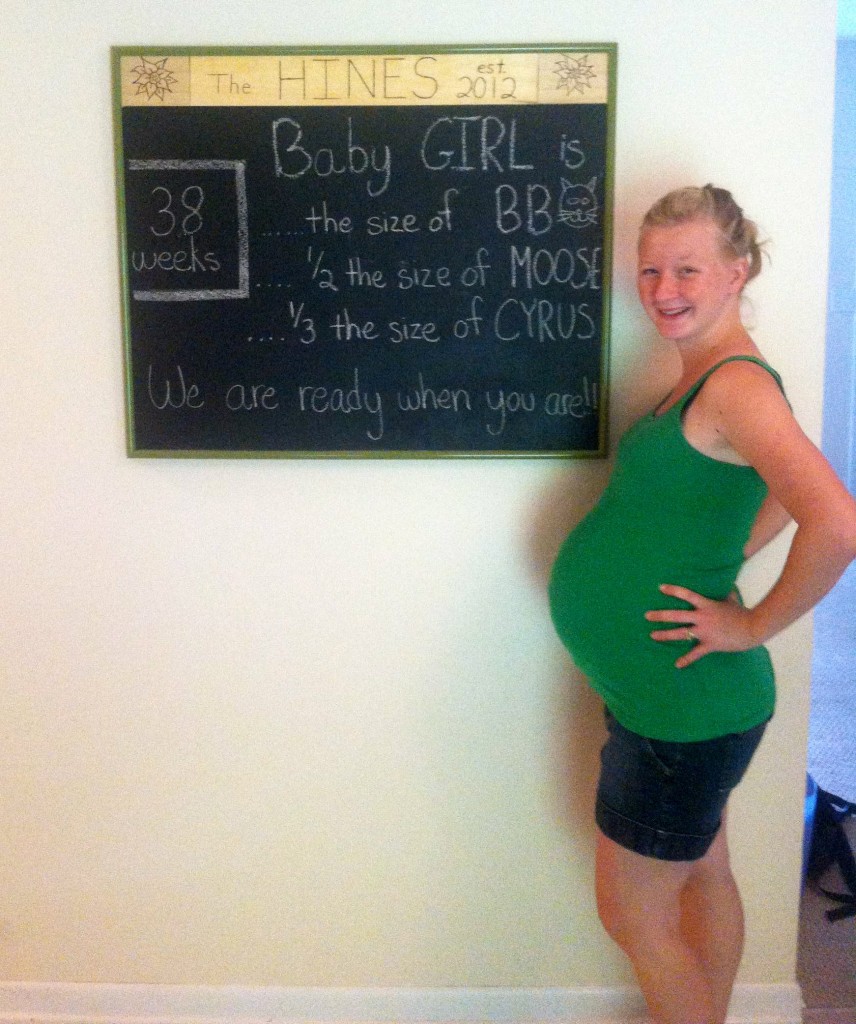 The HINES est. 2012
Baby GIRL is
38 weeks
......the size of BB
.... 1/2 the size of MOOSE
.... 1/3 the size of CYRUS
We are ready when you are!!